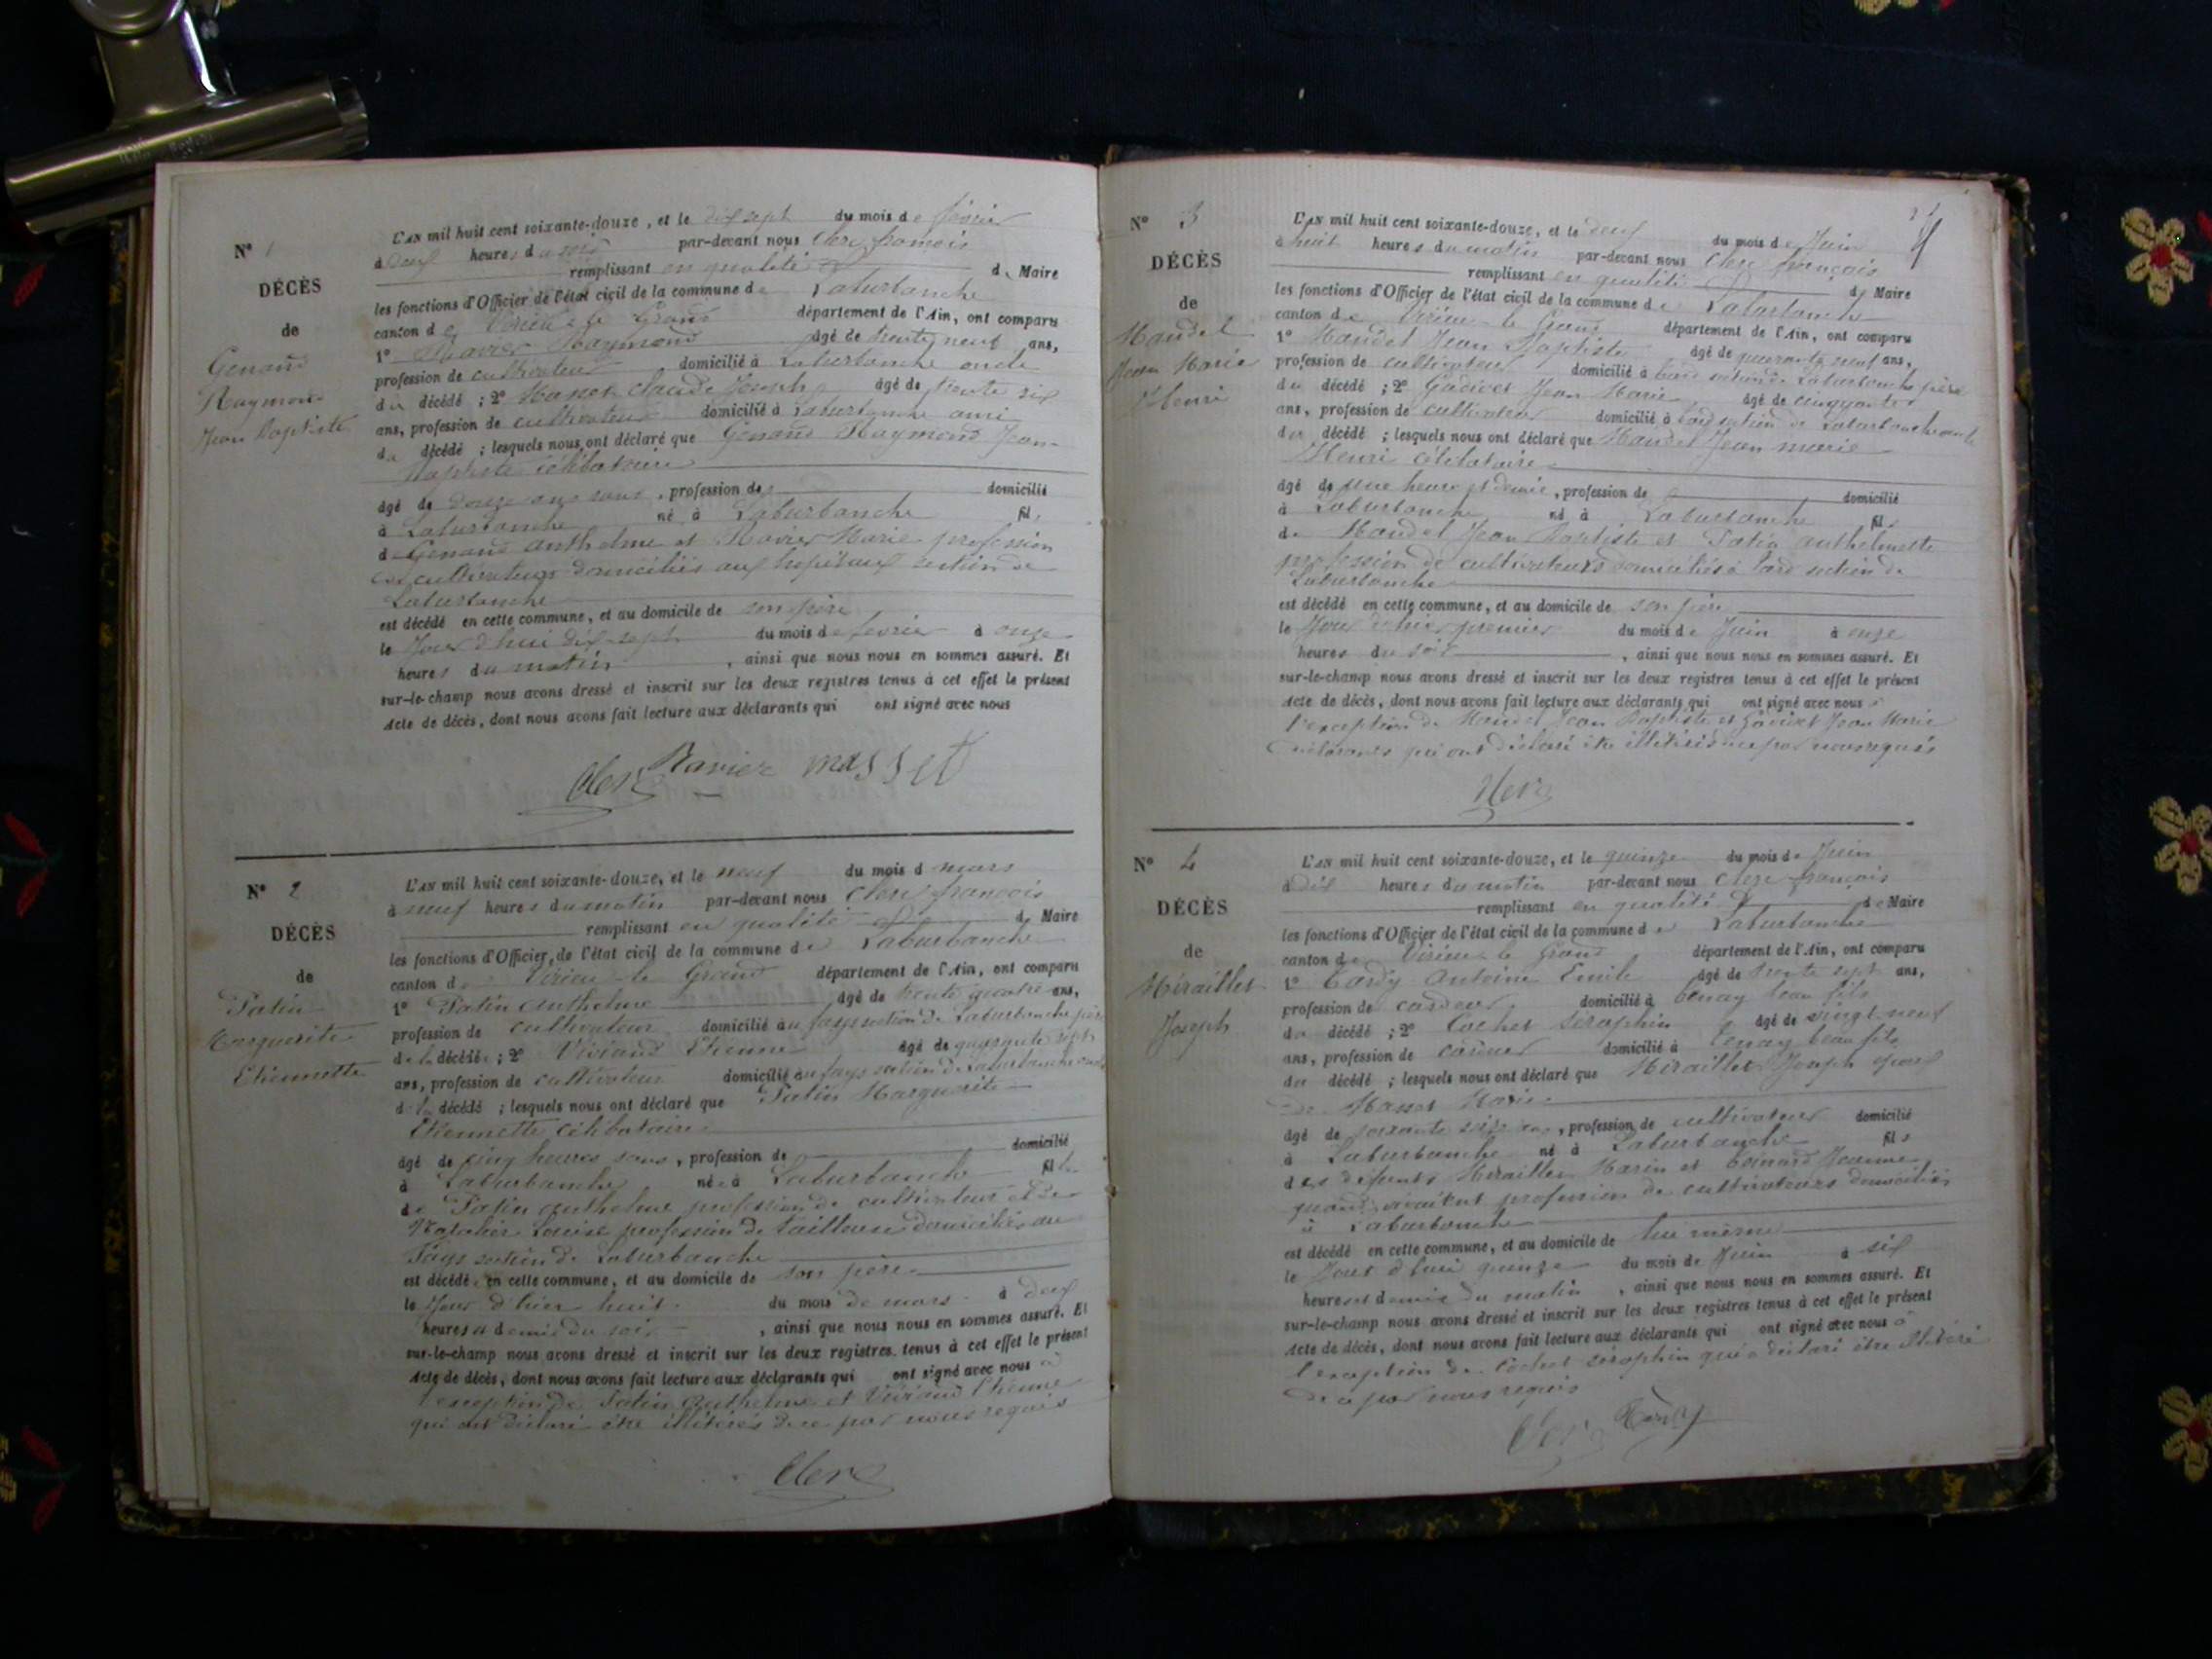 N° 1
DÉCÈS
de
Genand
Raymond
Jean Baptiste
L'AN mil huit cent soixante-douze, et le dix sept du mois de février
à deux heures du soir par-devant nous Clerc françois
remplissant en qualité d Maire
les fonctions d'Officier de l'état civil de la commune de Laburbanche
canton de Virieu-le Grand département de l'Ain, ont comparu
1° Ravier Raymond âgé de trente neuf ans,
profession de cultivateur domicilié à Laburbanche oncle
du décédé ; 2° Masset Claude Joseph âgé de trente six
ans, profession de cultivateur domicilié à Laburbanche ami
du décédé ; lesquels nous ont déclaré que Genand Raymond Jean-
Baptiste célibataire
âgé de douze ans , profession de domicilié
à Laburbanche né à Laburbanche fils
d Genand anthelme et Ravier Marie profession
de cultivateurs domiciliés aux section de
Laburbanche
est décédé en cette commune, et au domicile de son père
le Jour d'hui dix-sept du mois de fevrier à onze
heures du matin , ainsi que nous nous en sommes assuré. Et
sur-le-champ nous avons dressé et inscrit sur les deux registres tenus à cet effet le présent
Acte de décès, dont nous avons fait lecture aux déclarants qui ont signé avec nous
Clerc Ravier masset
N° 2
DÉCÈS
de
Patin
Marguerite
Etiennette
L'AN mil huit cent soixante-douze, et le neuf du mois d mars
à neuf heures du matin par-devant nous Clerc françois
remplissant en qualité d Maire
les fonctions d'Officier de l'état civil de la commune de Laburbanche
canton de Virieu-le Grand département de l'Ain, ont comparu
1° Patin Anthelme âgé de trente quatre ans,
profession de cultivateur domicilié au fays section de Laburbanche père
de la décédée ; 2° Viviand Etienne âgé de quarante sept
ans, profession de cultivateur domicilié au fays section de Laburbanche
de la décédé ; lesquels nous ont déclaré que Patin Marguerite
Etiennette célibataire
âgé de cinq heures , profession de domicilié
à Laburbanche née à Laburbanche fille
de Patin anthelme profession de cultivateur et de
Louise profession de tailleuse domiciliés au
Fays section de Laburbanche
est décédée en cette commune, et au domicile de son père
le Jour d'hier huit du mois de mars à deux
heures et demie du soir , ainsi que nous nous en sommes assuré. Et
sur-le-champ nous avons dressé et inscrit sur les deux registres tenus à cet effet le présent
Acte de décès, dont nous avons fait lecture aux déclarants qui ont signé avec nous à
l'exception de Patin Anthelme et Viviand Etienne
qui ont déclaré être illitérés de ce par nous requis
Clerc
N° 3
DÉCÈS
de
Mandel
Jean Marie
Henri
L'AN mil huit cent soixante-douze, et le deux du mois de Juin
à huit heures du matin par-devant nous Clerc françois
remplissant en qualité d Maire
les fonctions d'Officier de l'état civil de la commune de Laburbanche
canton de Virieu-le Grand département de l'Ain, ont comparu
1° Mandel Jean Baptiste âgé de quarante neuf ans,
profession de cultivateur domicilié à section de Laburbanche père
du décédé ; 2° Jean Marie âgé de cinquante
ans, profession de cultivateur domicilié à section de Laburbanche
du décédé ; lesquels nous ont déclaré que Mandel Jean marie
Henri célibataire
âgé de une heure et demie , profession de domicilié
à Laburbanche né à Laburbanche fils
de Mandel Jean Baptiste et Patin anthelmette
profession de cultivateurs domiciliés à section de
Laburbanche
est décédé en cette commune, et au domicile de son père
le Jour d'hier premier du mois de Juin à onze
heures du soir , ainsi que nous nous en sommes assuré. Et
sur-le-champ nous avons dressé et inscrit sur les deux registres tenus à cet effet le présent
Acte de décès, dont nous avons fait lecture aux déclarants qui ont signé avec nous à
l'exception de Mandel Jean Baptiste et Jean Marie
déclarants qui ont déclaré être illitérés de ce par nous requis
Clerc
N° 4
DÉCÈS
de
Miraillet
Joseph
L'AN mil huit cent soixante-douze, et le quinze du mois de Juin
à dix heures du matin par-devant nous Clerc françois
remplissant en qualité de Maire
les fonctions d'Officier de l'état civil de la commune de Laburbanche
canton de Virieu-le Grand département de l'Ain, ont comparu
1° Tardy Antoine Emile âgé de trente sept ans,
profession de cardeur domicilié à tenay beau fils
du décédé ; 2° Cochet Séraphin âgé de vingt neuf
ans, profession de cardeur domicilié à tenay beau fils
du décédé ; lesquels nous ont déclaré que Miraillet Joseph époux
de Masset Marie
âgé de soixante ans , profession de cultivateur domicilié
à Laburbanche né à Laburbanche fils
des défunts Miraillet Marin et Jeanne
quand vivaient profession de cultivateurs domiciliés
à Laburbanche
est décédé en cette commune, et au domicile de lui même
le Jour d'hui quinze du mois de Juin à six
heures et demie du matin , ainsi que nous nous en sommes assuré. Et
sur-le-champ nous avons dressé et inscrit sur les deux registres tenus à cet effet le présent
Acte de décès, dont nous avons fait lecture aux déclarants qui ont signé avec nous à
l'exception de Cochet séraphin qui a déclaré être illitéré
de ce par nous requis
Clerc Tardy